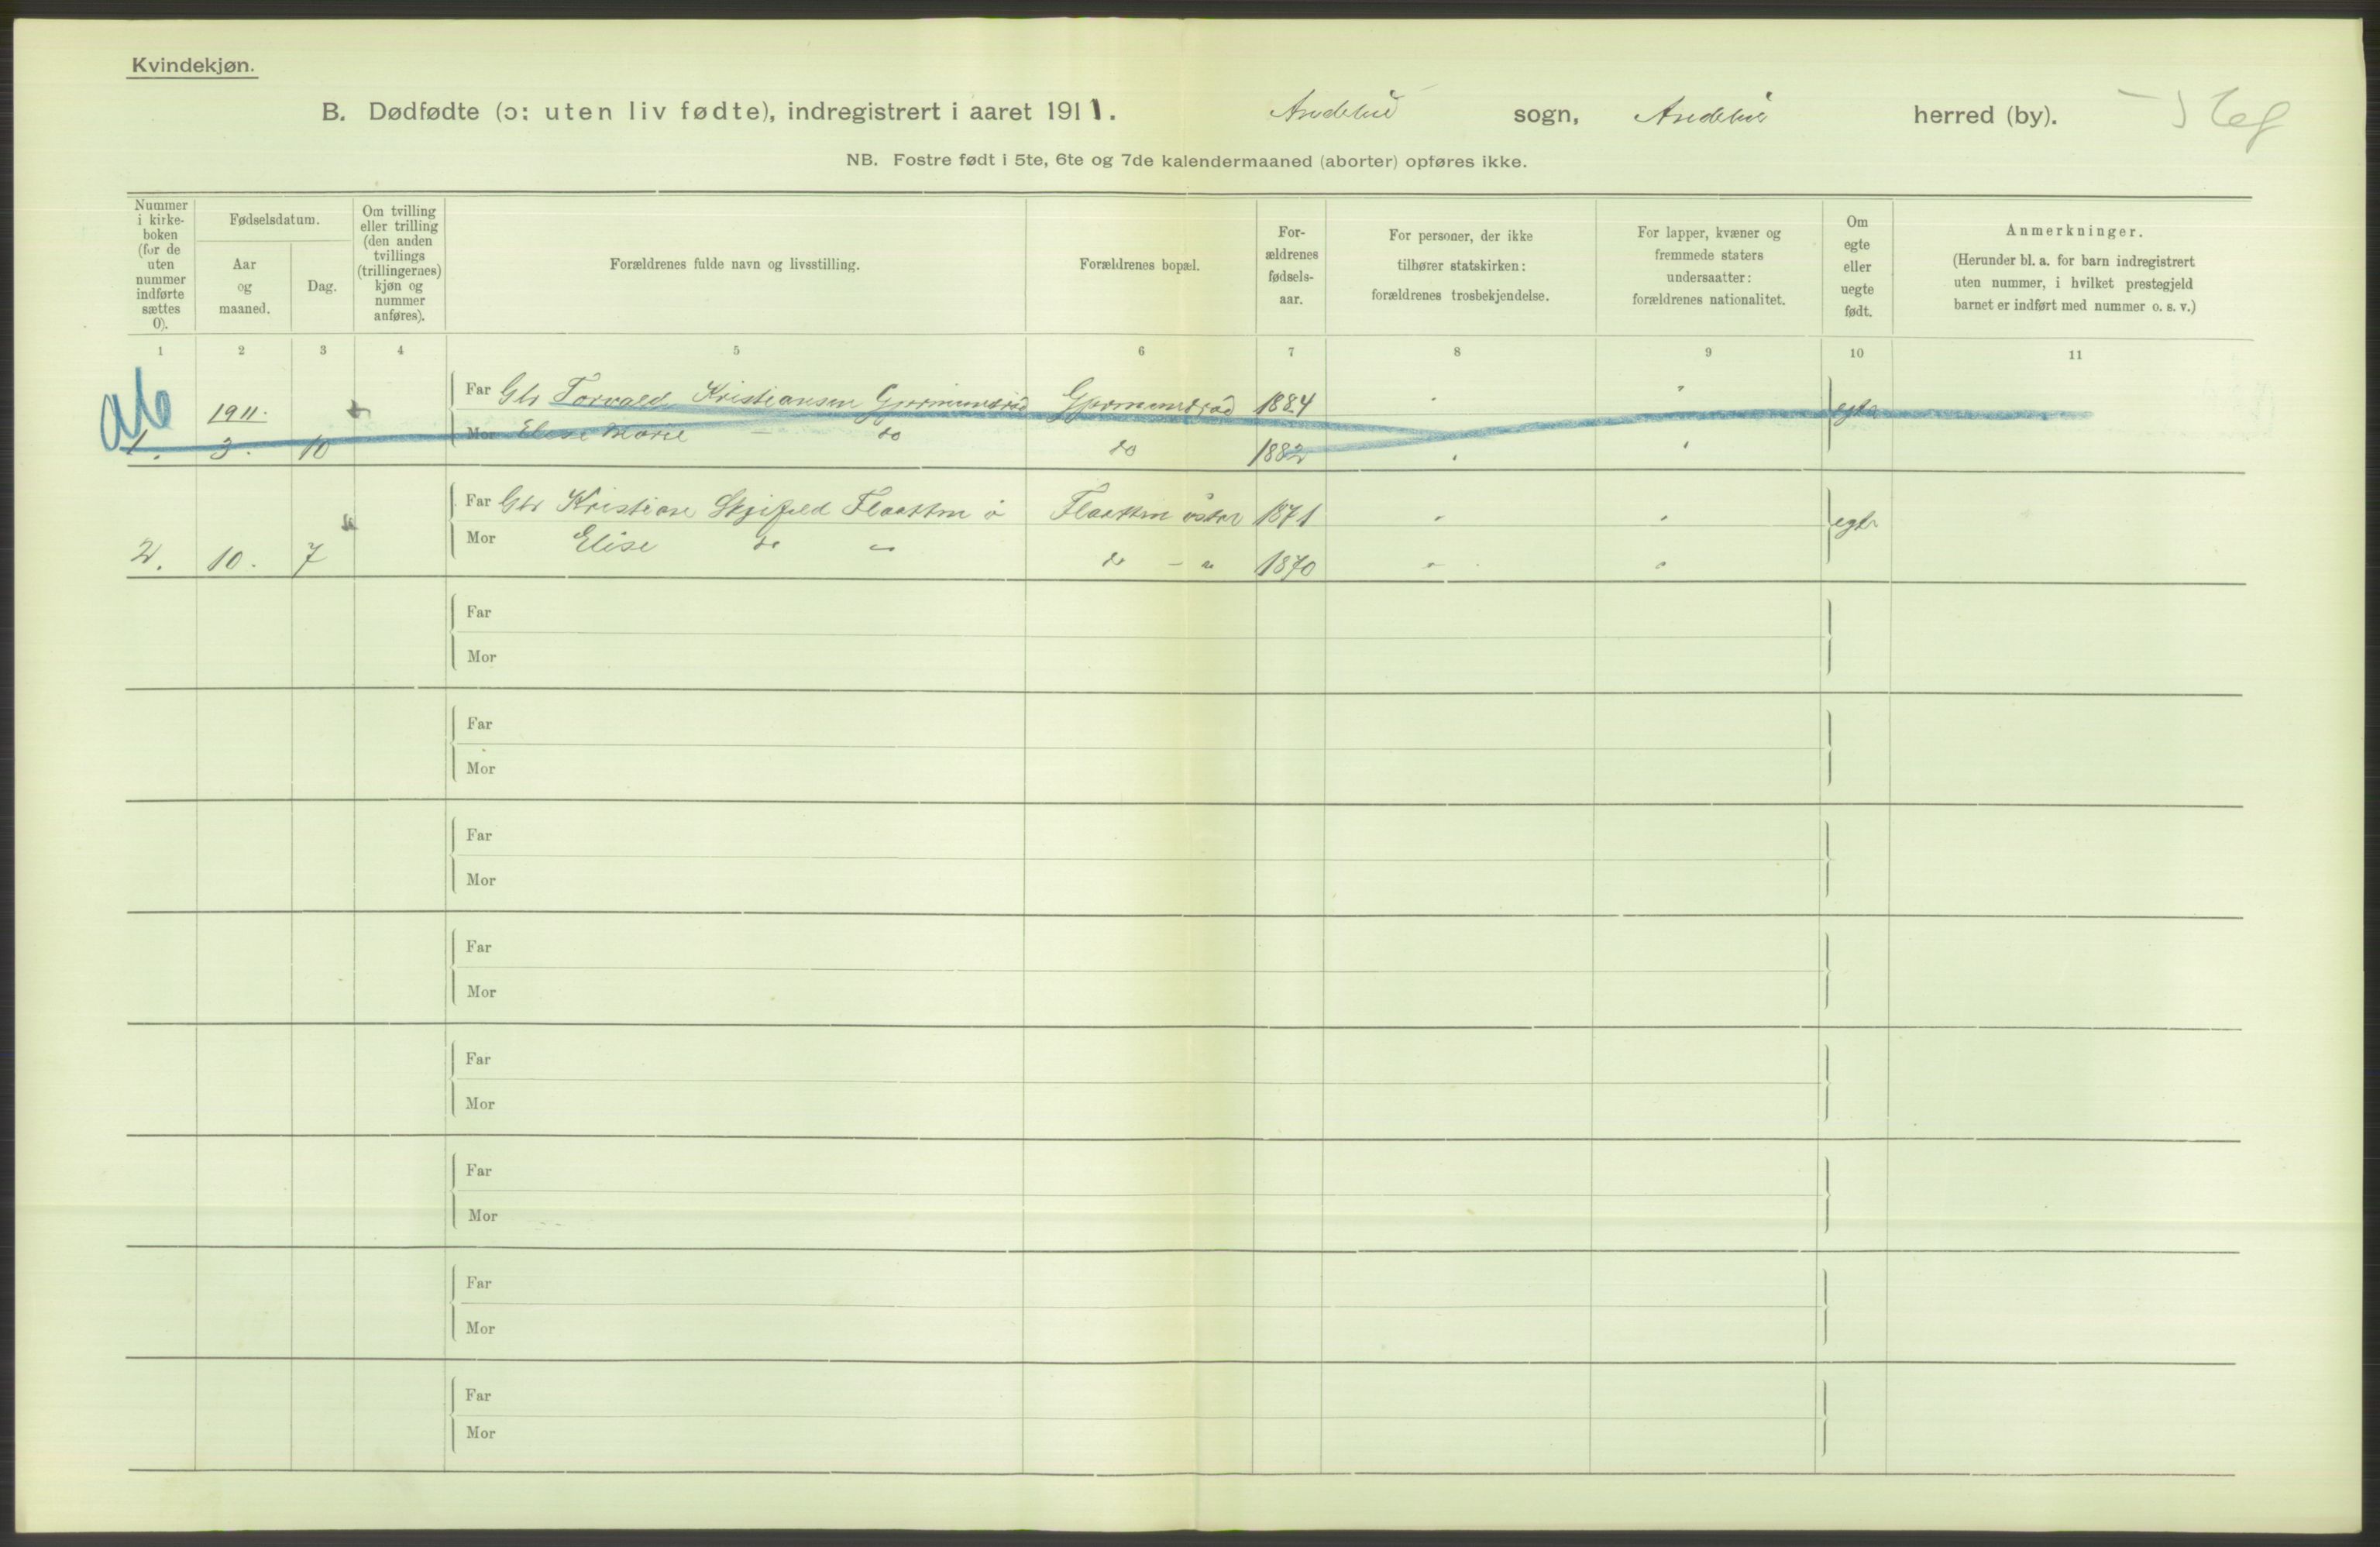 Kvindekjøn.
B. Dødfødte (ɔ: uten liv fødte), indregistrert i aaret 1911. Andebu sogn, Andebu herred (by).
NB. Fostre født i 5te, 6te og 7de kalendermaaned (aborter) opføres ikke.
Nummer i kirke-boken (for de uten nummer indførte sættes 0).
Fødselsdatum.
Aar og maaned.
Dag.
Om tvilling eller trilling (den anden tvillings (trillingernes) kjøn og nummer anføres).
Forældrenes fulde navn og livsstilling.
Forældrenes bopæl.
For-ældrenes fødsels-aar.
For personer, der ikke tilhører statskirken: forældrenes trosbekjendelse.
For lapper, kvæner og fremmede staters undersaatter: forældrenes nationalitet.
Om egte eller uegte født.
Anmerkninger.
(Herunder bl. a. for barn indregistrert uten nummer, i hvilket prestegjeld barnet er indført med nummer o. s. v.)
1 2 3 4 5 6 7 8 9 10 11
1911. Far Gbr Torvald Kristiansen Gjermundrød Gjermundrød 1884 " " egte
1. 3. 10 Mor Elise Marie - do do 1882 " "
Far Gbr Kristian Skjifjeld Flaatten ø Flaatten østre 1871 " " egte
2. 10. 7 Mor Elise do " do - " 1870 " "
Far
Mor
Far
Mor
Far
Mor
Far
Mor
Far
Mor
Far
Mor
Far
Mor
Far
Mor